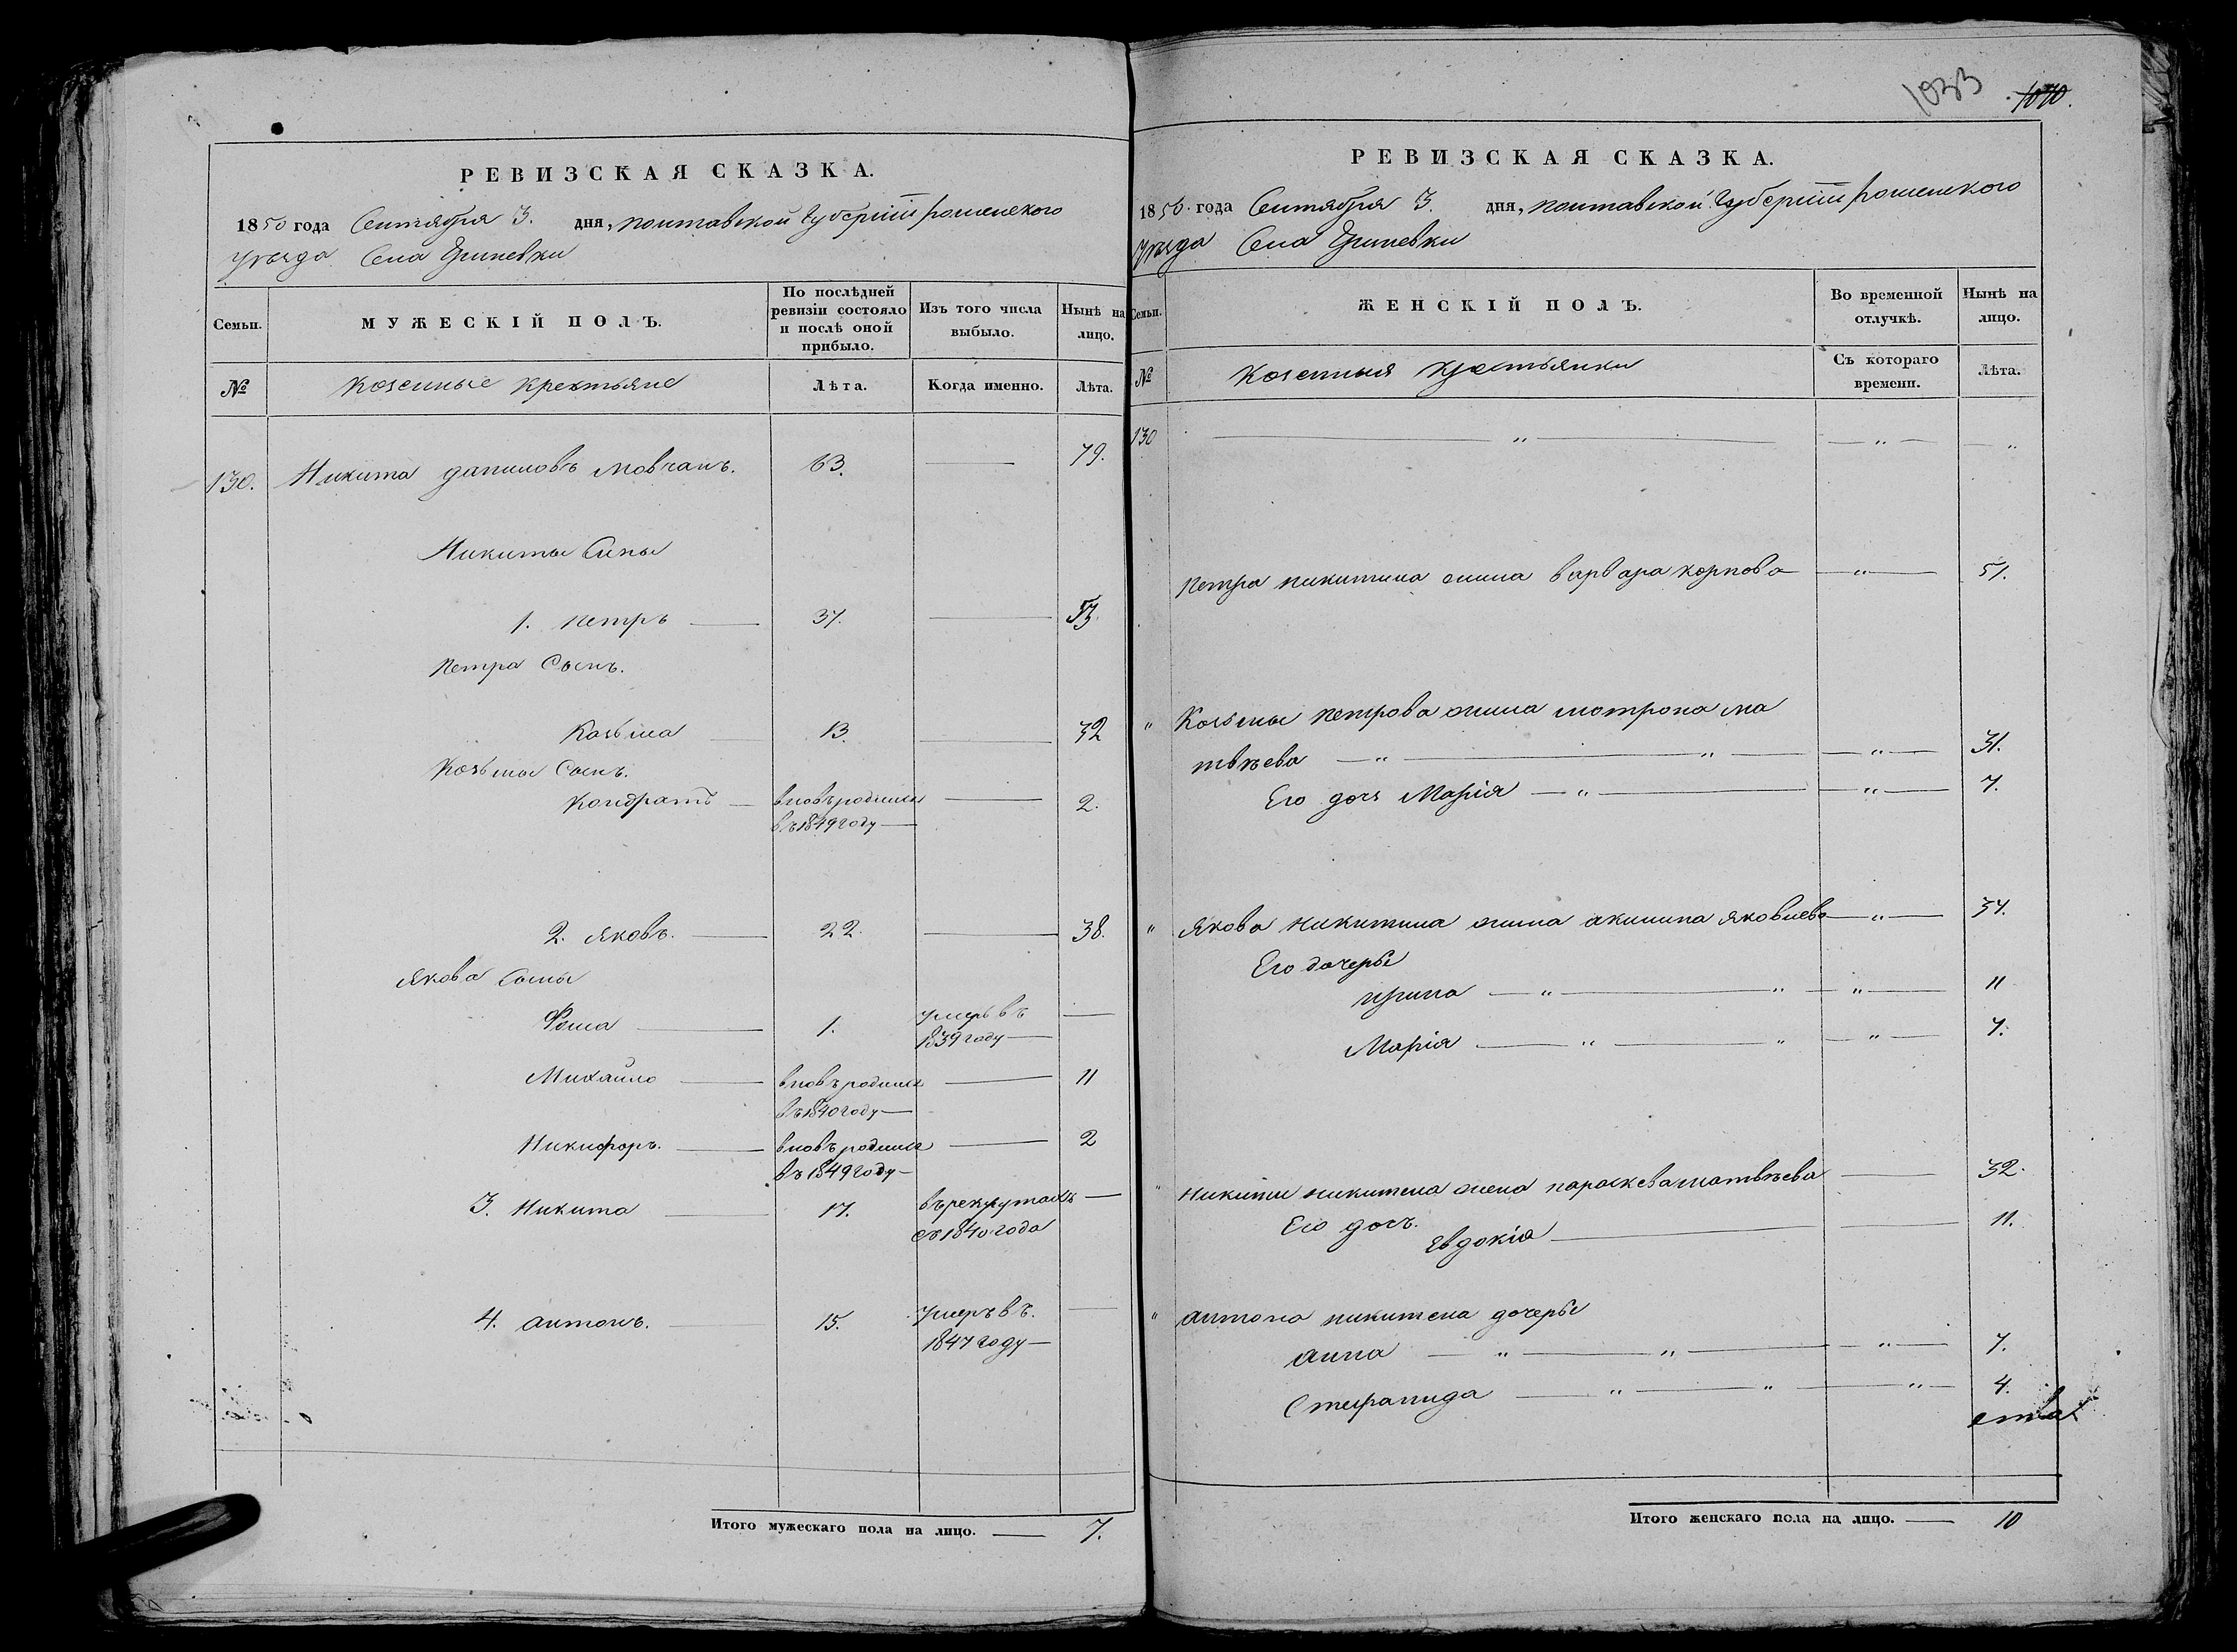 1033 1070.
РЕВИЗСКАЯ СКАЗКА.
1850 года Сентября 3. дня, полтавской Губерніи роменского
уѣзда Села
Семьи. МУЖЕСКІЙ ПОЛЪ. По послѣдней ревизіи состояло и послѣ оной прибыло. Изъ того числа выбыло. Нынѣ на лицо.
№ козенные крестьяне Лѣта. Когда именно. Лѣта.
130. Никита даниловъ мовчанъ. 63. — 79.
Никиты Сины
1. петръ — 37. — 53.
петра Сынъ.
Козьма — 13. — 32
Козьмы Сынъ.
Кондратъ — вновь родился — 2.
въ 1849 году —
2. яковъ. — 22. — 38.
якова Сыны
Фома — 1. умеръ въ —
1839 году —
Михайло — вновь родился — 11
въ 1840 году —
Никифоръ. — вновь родился — 2
въ 1849 году —
3. Никита — 17. въ рекрутахъ —
съ 1840 года
4. антонъ. — 15. умеръ въ. —
1847 году —
Итого мужескаго пола на лицо. — 7.
РЕВИЗСКАЯ СКАЗКА.
1850 года Сентября 3. дня, полтавской Губерніи роменского
уѣзда Села
Семьи. ЖЕНСКІЙ ПОЛЪ. Во временной отлучкѣ. Нынѣ на лицо.
№ козенныя крестьянки Съ котораго времени. Лѣта.
130 — " — — " — — "
петра никитина жина варвара корпова — " — 51.
" Козьмы петрова жина мотрона ма
твѣева — " — " — — " — 31.
Его доч Марія — " — — " — 7.
" якова никитина жина акилина яковлева — " — 34.
Его дочеры
ирина — " — " — " — 11
Марія — " — " — " — 7.
" никиты никитена жена параскева матвѣева — 32.
Его доч.
Евдокія — — 11.
" антона никитена дочеры
анна — " — " — " — 7.
Стефанида — " — " — " — 4.
Итого женскаго пола на лицо. — 10